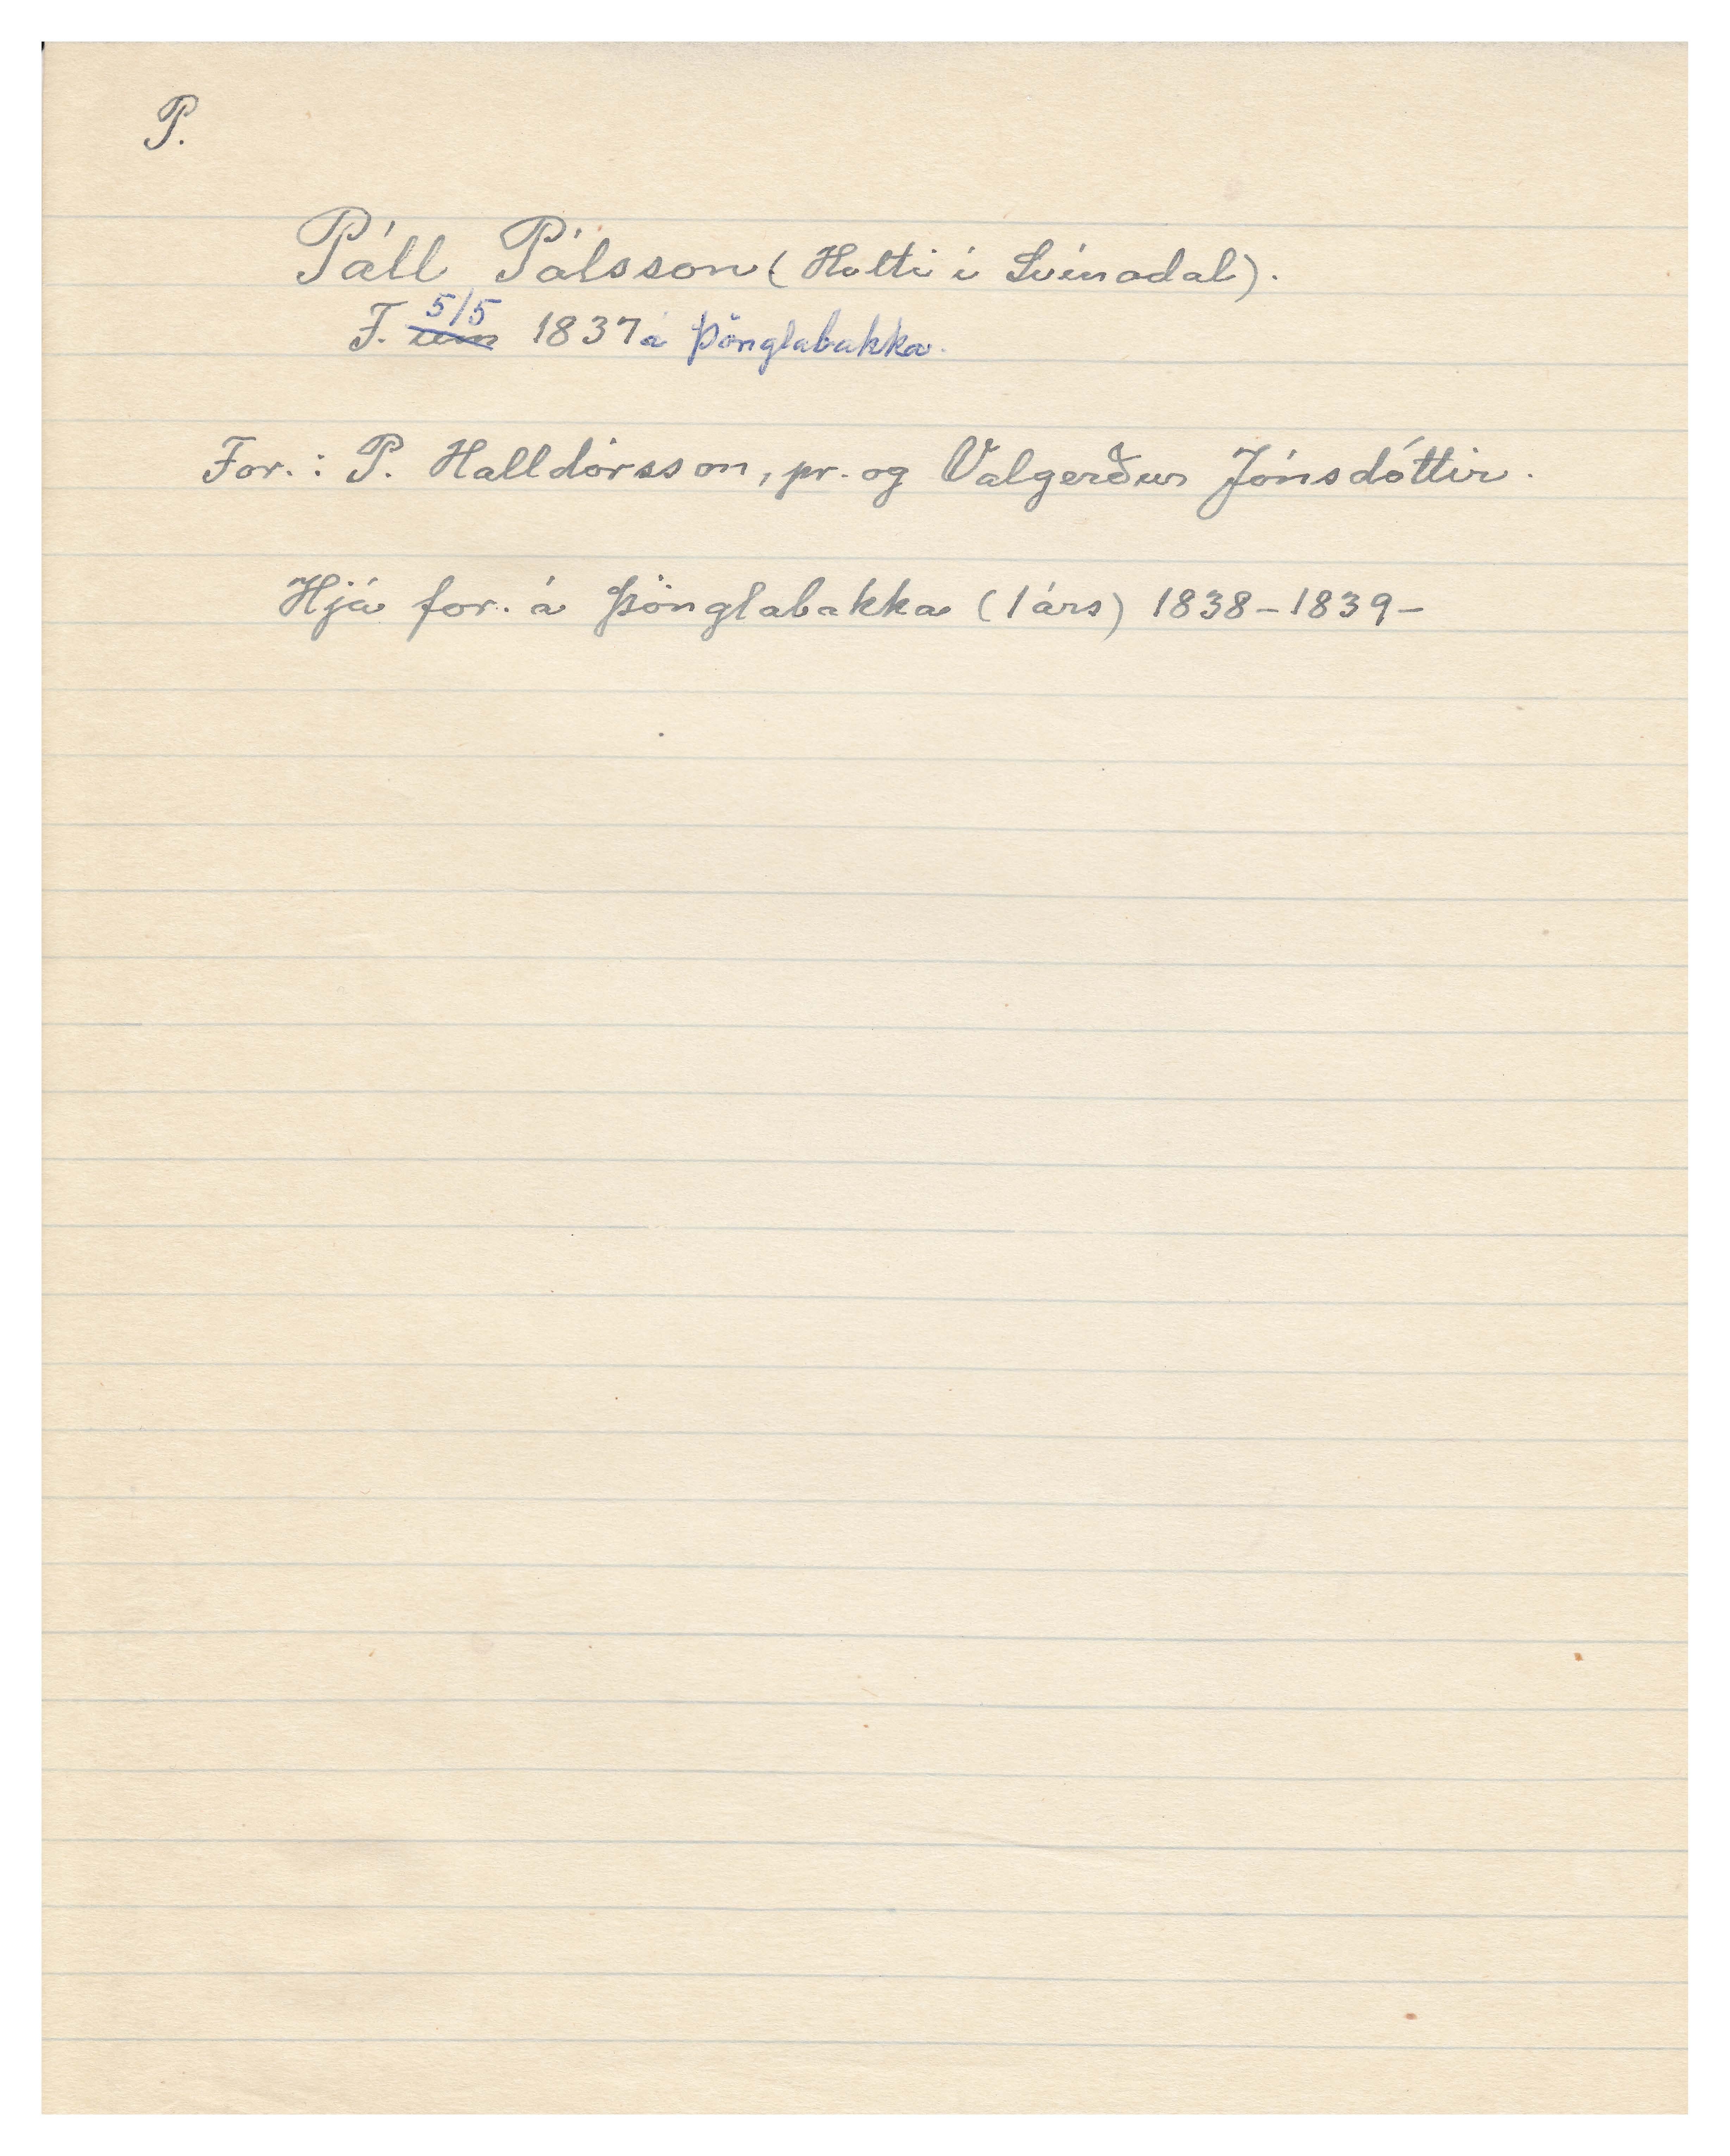 P.
Páll Pálsson (Holti í Svínadal).
F. 5/5 um 1837 á Þönglabakka.
For.: P. Halldórsson, pr. og Valgerður Jónsdóttir.
Hjá for. á Þönglabakka (1 árs) 1838-1839-